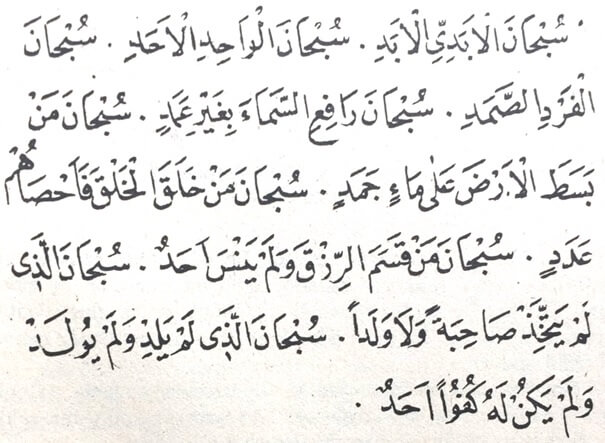 سُبْحَانَ الْاَبَدِىِّ الْاَبَدِ . سُبْحَانَ الْوَاحِدِ الْاَحَدِ . سُبْحَانَ
الْفَرْدِ الصَّمَدِ . سُبْحَانَ رَافِعِ السَّمَاءِ بِغَيْرِ عَمَدٍ . سُبْحَانَ مَنْ
بَسَطَ الْاَرْضَ عَلٰى مَاءٍ جَمَدٍ . سُبْحَانَ مَنْ خَلَقَ الْخَلْقَ فَاَحْصَاهُمْ
عَدَدٍ . سُبْحَانَ مَنْ قَسَمَ الرِّزْقَ وَلَمْ يَنْسَ اَحَدٌ . سُبْحَانَ الَّذِى
لَمْ يَتَّخِذْ صَاحِبَةً وَلَا وَلَداً . سُبْحَانَ الَّذِى لَمْ يَلِدْ وَلَمْ يُولَدْ
وَلَمْ يَكُنْ لَهُ كُفُوًا اَحَدٌ .